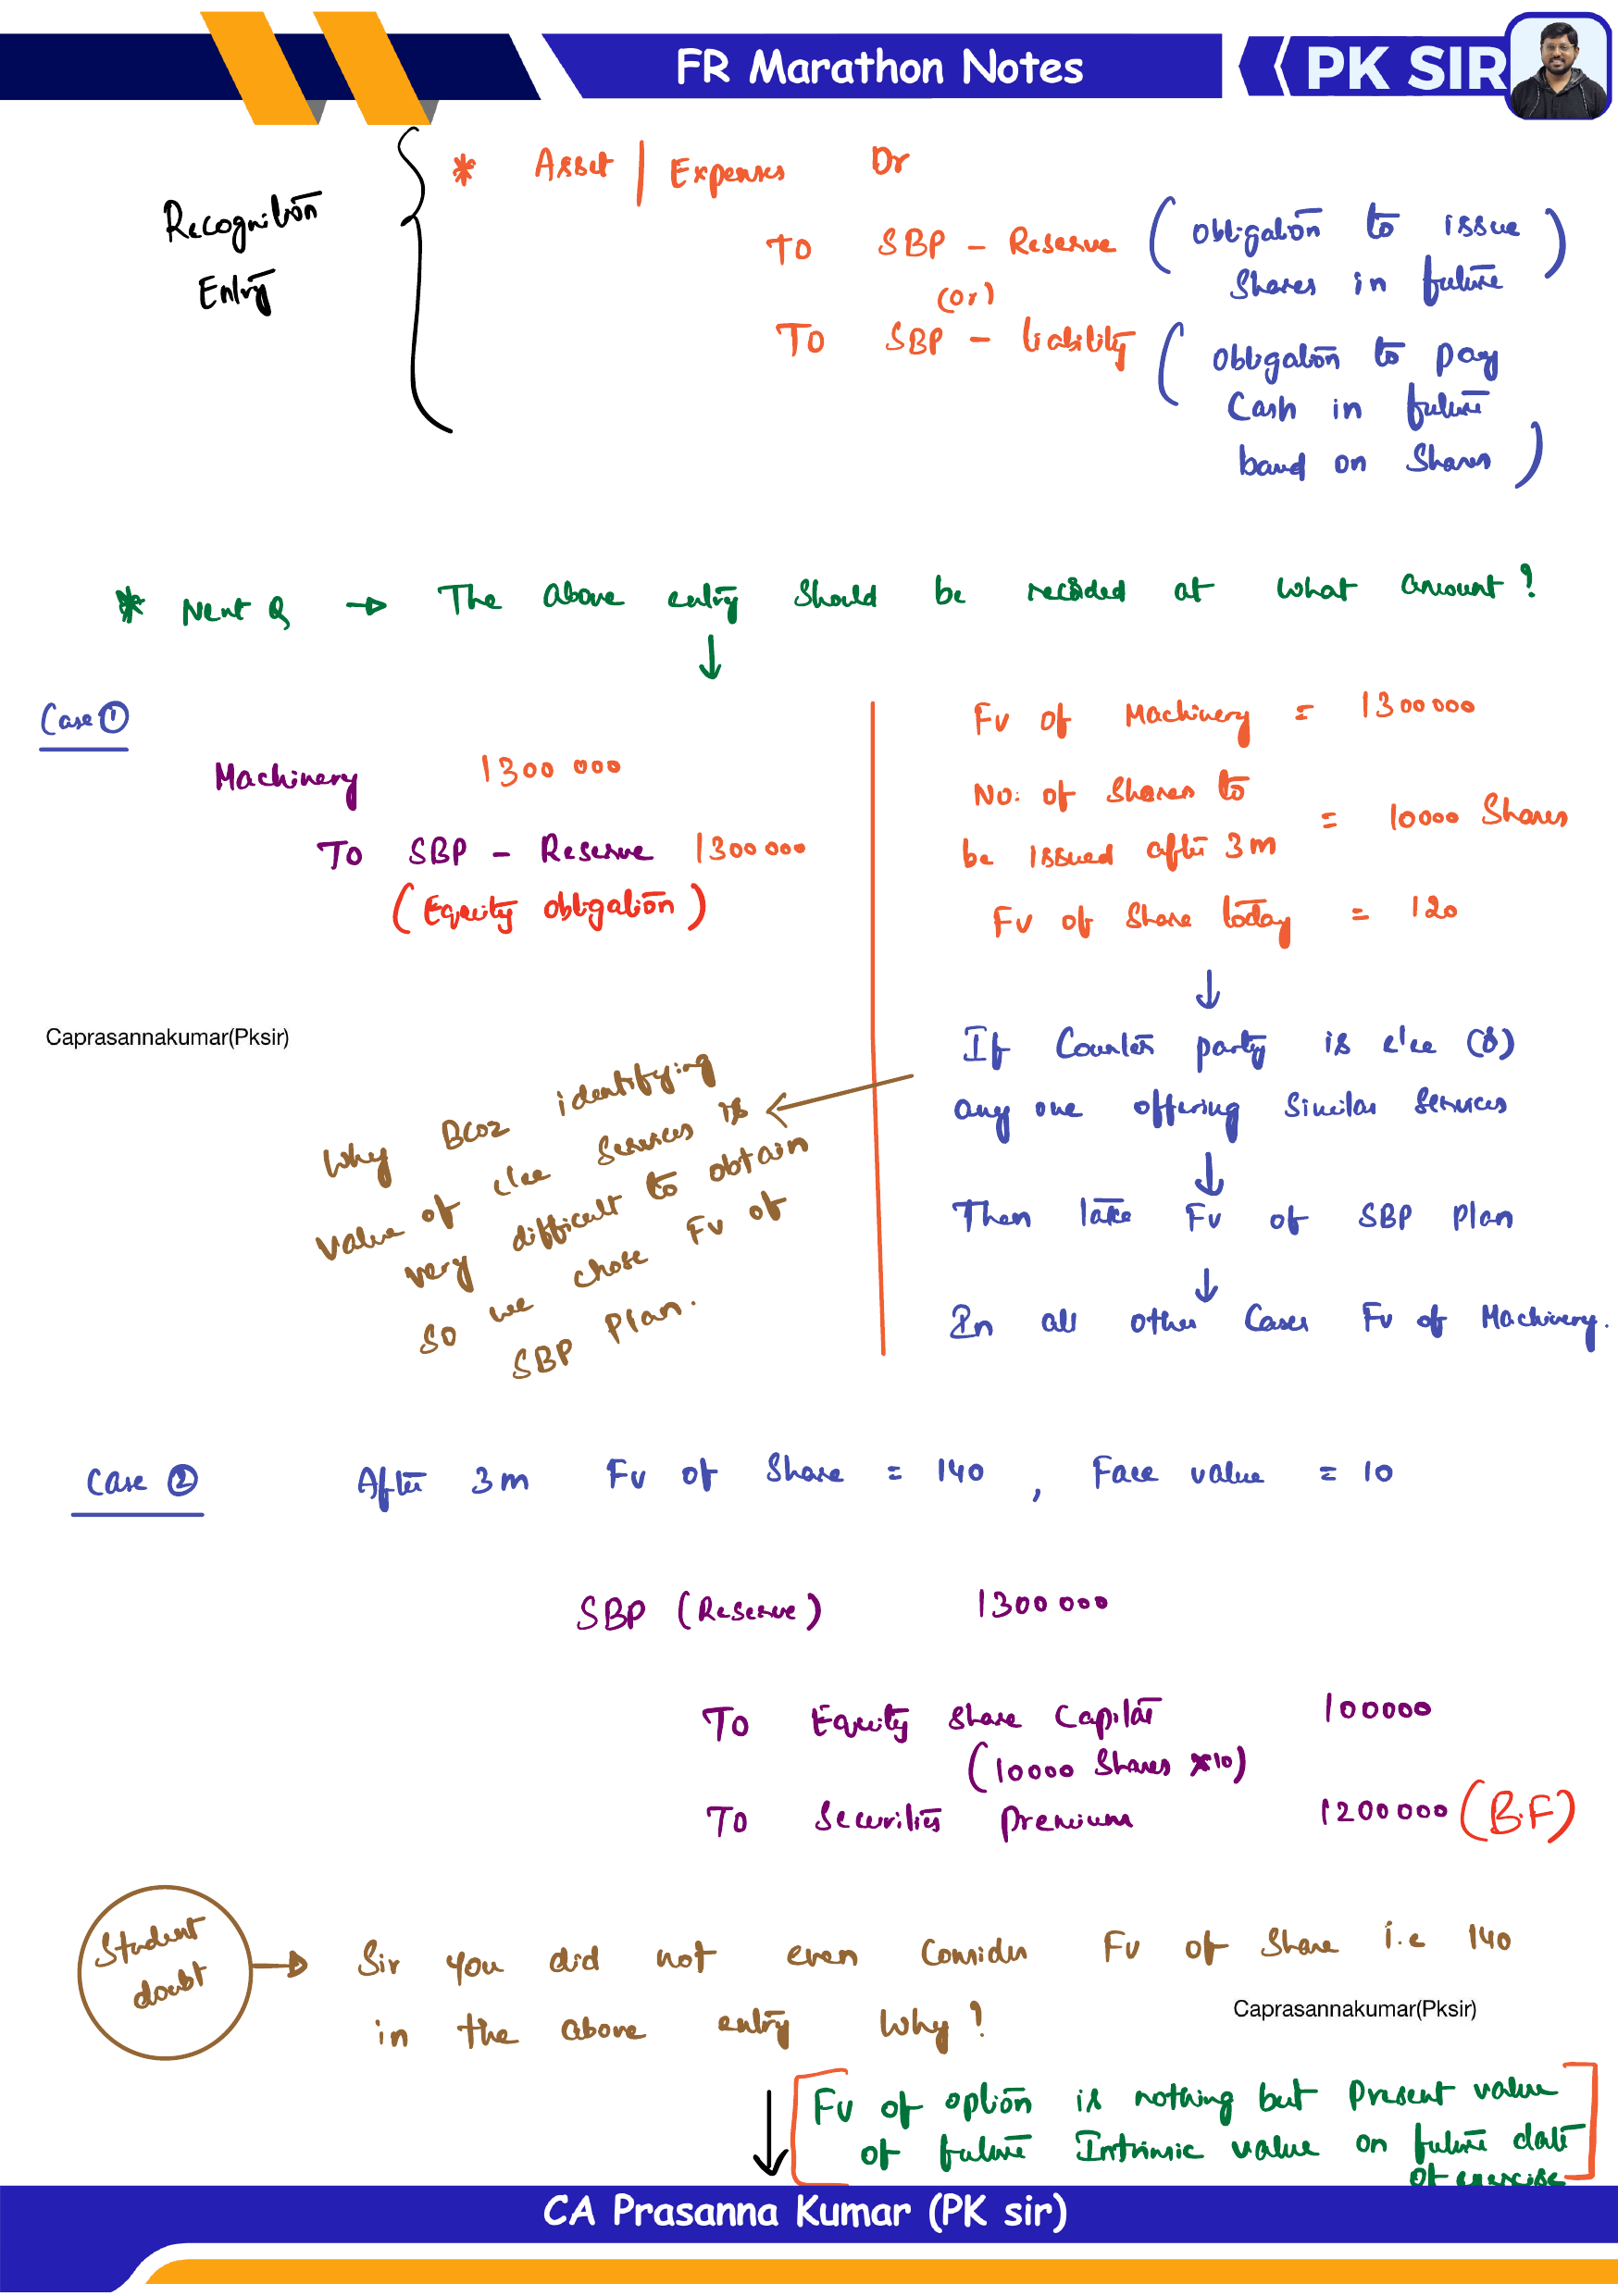 FR Marathon Notes
PK SIR
Recognition
Entry
* Asset | Expenses Dr
To SBP - Reserve (obligation to issue
shares in future)
(or)
To SBP - liability (obligation to pay
cash in future
based on shares)
* Next Q → The above entry should be recorded at what amount?
Case ①
Machinery 1300 000
To SBP - Reserve 1300 000
(Equity obligation)
Fv of Machinery = 1300 000
No: of Shares to
be issued after 3m = 10000 Shares
Fv of Share today = 120
↓
If Counter party is e'ee (or)
any one offering similar services
↓
Then take Fv of SBP plan
↓
In all other Cases Fv of Machinery.
Caprasannakumar(Pksir)
Why Bcoz identifying
value of e'ee services is
very difficult to obtain
so we chose Fv of
SBP plan.
Case ② After 3m Fv of Share = 140 , Face value = 10
SBP (Reserve) 1300 000
To Equity Share Capital 100000
(10000 Shares x10)
To Securities Premium 1200 000 (B.F)
Student
doubt
→ Sir you did not even consider Fv of Share i.e 140
in the above entry Why?
Caprasannakumar(Pksir)
Fv of option is nothing but Present value
of future Intrinsic value on future date
of exercise
CA Prasanna Kumar (PK sir)